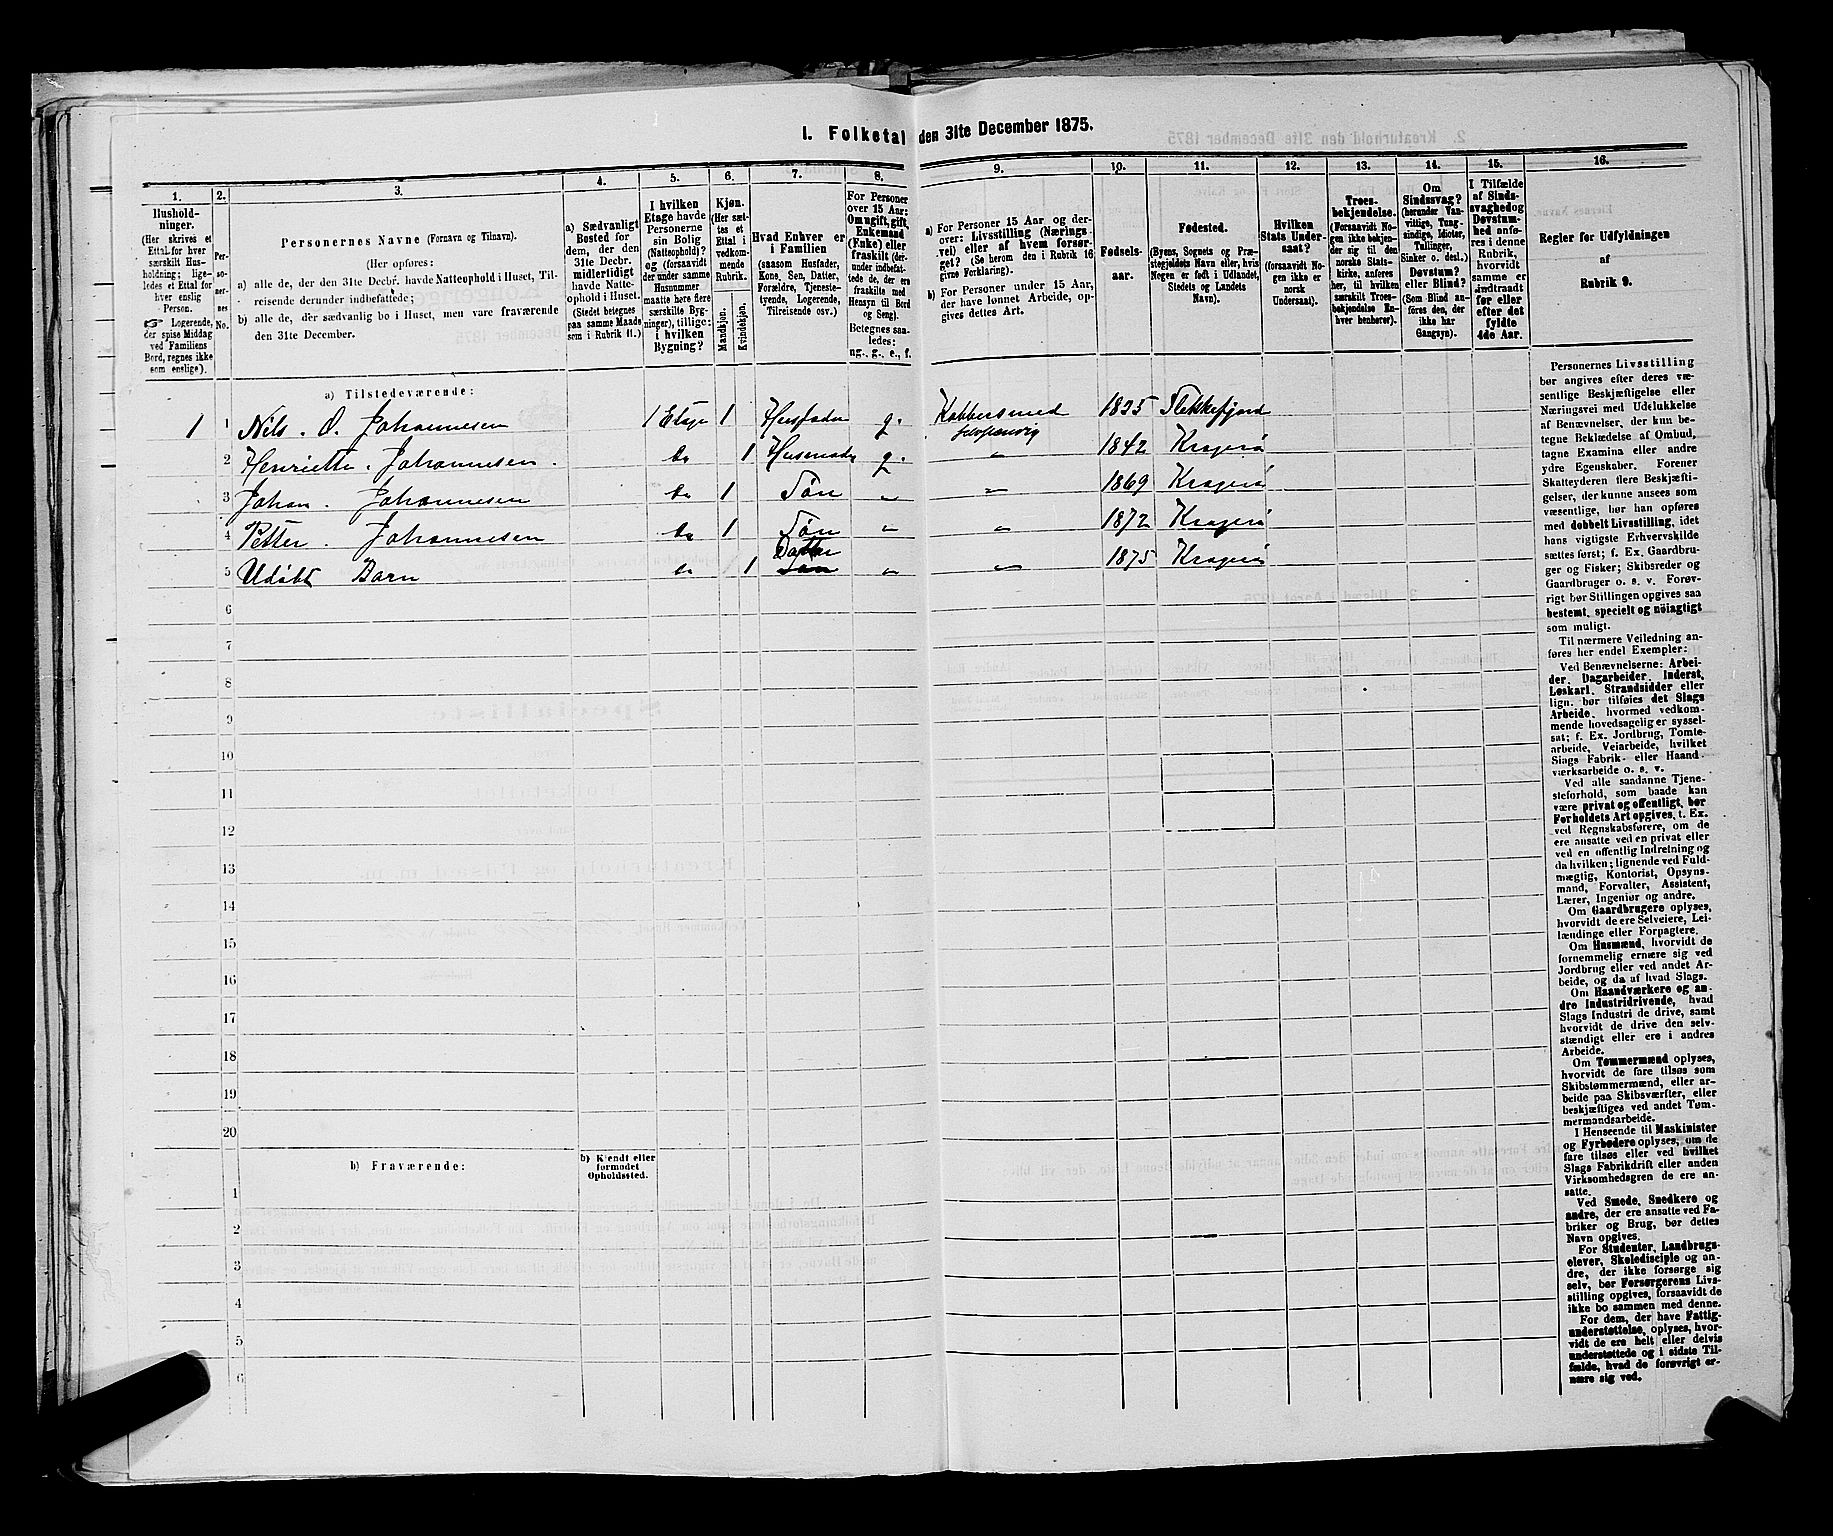 I. Folketal den 31te December 1875.
1.
2.
3.
4.
5.
6.
7.
8.
9.
10.
11.
12.
13.
14.
15.
16.
Hushold-
ninger.
(Her skrives et
Ettal for hver
særskilt Hus-
holdning; lige-
ledes et Ettal for
hver enslig
Person.
☞ Logerende,
der spise Middag
ved Familiens
Bord, regnes ikke
som enslige).
Per-
so-
ner-
nes
No.
Personernes Navne (Fornavn og Tilnavn).
(Her opføres:
a) alle de, der den 31te Decbr. havde Natteophold i Huset, Til-
reisende derunder indbefattede;
b) alle de, der sædvanlig bo i Huset, men vare fraværende
den 31te December.
a) Sædvanligt
Bosted for
dem, der den
31te Decbr.
midlertidigt
havde Natte-
ophold i Huset.
(Stedet betegnes
paa samme Maade
som i Rubrik 11.)
I hvilken
Etage havde
Personerne
sin Bolig
(Natteophold)?
og (forsaavidt
der under samme
Husnummer
maatte høre flere
særskilte Byg-
ninger), tillige:
i hvilken
Bygning?
Kjøn.
(Her sæt-
tes et
Ettal i
vedkom-
mende
Rubrik.
Mandkjøn.
Kvindekjøn.
Hvad Enhver er
i Familien
(saasom Husfader,
Kone, Søn, Datter,
Forældre, Tjeneste-
tyende, Logerende,
Tilreisende osv.)
For Personer
over 15 Aar:
Om ugift, gift,
Enkemand
(Enke) eller
fraskilt (der-
under indbefat-
tede de, der ere
fraskilte med
Hensyn til Bord
og Seng).
Betegnes saa-
ledes:
ug., g., e., f.
a) For Personer 15 Aar og der-
over: Livsstilling (Nærings-
vei) eller af hvem forsør-
get? (Se herom den i Rubrik 16
givne Forklaring).
b) For Personer under 15 Aar,
der have lønnet Arbeide, op-
gives dettes Art.
Fødsels-
aar.
Fødested.
(Byens, Sognets og Præ-
stegjeldets Navn eller, hvis
Nogen er født i Udlandet,
Stedets og Landets
Navn).
Hvilken
Stats Under-
saat?
(forsaavidt No-
gen ikke er
norsk
Undersaat).
Troes-
bekjendelse.
(Forsaavidt No-
gen ikke bekjen-
der sig til den
norske Stats-
kirke, anføres
her, til hvilken
særskilt Troes-
bekjendelse En-
hver henhører).
Om
Sindssvag?
(herunder Van-
vittige, Tung-
sindige, Idioter,
Tullinger,
Sinker o. desl.)
Døvstum?
eller Blind?
(Som Blind an-
føres den, der
ikke har
Gangsyn).
I Tilfælde
af Sinds-
svaghed og
Døvstum-
hed anfø-
res i denne
Rubrik,
hvorvidt
samme er
indtraadt
før eller
efter det
fyldte
4de Aar.
Regler for Udfyldningen
af
Rubrik 9.
a) Tilstedeværende:
1 1 Nils. O. Johannesen 1 Etage 1 Husfader g. Kobbersmed 1835 Flekkefjord
2 Henriette. Johannesen. do 1 Husmoder g. " 1842 Kragerø
3 Johan. Johannesen do 1 Søn " " 1869 Kragerø
4 Petter. Johannesen do 1 Søn " " 1872 Kragerø
Datter
5 Udøbt Barn do 1 Søn " " 1875 Kragerø
6
7
8
9
10
11
12
13
14
15
16
17
18
19
20
b) Fraværende:
b) Kjendt eller
formodet
Opholdssted.
1
2
3
4
5
6
Personernes Livsstilling
bør angives efter deres væ-
sentlige Beskjæftigelse eller
Næringsvei med Udelukkelse
af Benævnelser, der kun be-
tegne Beklædelse af Ombud,
tagne Examina eller andre
ydre Egenskaber. Forener
Skatteyderen flere Beskjæfti-
gelser, der kunne ansees som
væsentlige, bør han opføres
med dobbelt Livsstilling, idet
hans vigtigste Erhvervskilde
sættes først; f. Ex. Gaardbru-
ger og Fisker; Skibsreder og
Gaardbruger o. s. v. Forøv-
rigt bør Stillingen opgives saa
bestemt, specielt og nöiagtigt
som muligt.
Til nærmere Veiledning an-
føres her endel Exempler:
Ved Benævnelserne: Arbei-
der, Dagarbeider, Inderst,
Løskarl, Strandsidder eller
lign. bør tilføies det Slags
Arbeide, hvormed vedkom-
mende hovedsagelig er syssel-
sat; f. Ex. Jordbrug, Tomte-
arbeide, Veiarbeide, hvilket
Slags Fabrik- eller Haand
værksarbeide o. s. v.
Ved alle saadanne Tjene-
steforhold, som baade kan
være privat og offentligt, bør
Forholdets Art opgives, t. Ex.
ved Regnskabsførere, om de
ere ansatte ved en privat eller
ved en offentlig Indretning og
da hvilken; lignende ved Fuld-
mægtig, Kontorist, Opsyns-
mand, Forvalter, Assistent,
Lærer, Ingeniør og andre.
Om Gaardbrugere oplyses,
hvorvidt de ere Selveiere, Lei-
lændinge eller Forpagtere.
Om Husmænd, hvorvidt de
fornemmelig ernære sig ved
Jordbrug eller ved andet Ar-
beide, og da af hvad Slags.
Om Haandværkere og an-
dre Industridrivende, hvad
Slags Industri de drive, samt
hvorvidt de drive den selv-
stændigt eller ere i andres
Arbeide.
Om Tømmermænd oplyses,
hvorvidt de fare tilsøs som
Skibstømmermænd, eller ar-
beide paa Skibsværfter, eller
beskjæftiges ved andet Tøm-
mermandsarbeide.
I Henseende til Maskinister
og Fyrbødere oplyses, om de
fare tilsøs eller ved hvilket
Slags Fabrikdrift eller anden
Virksomhedsgren de ere an-
satte.
Ved Smede, Snedkere og
andre, der ere ansatte ved Fa-
briker og Brug, bør dettes
Navn opgives.
For Studenter, Landbrugs-
elever, Skoledisciple og an-
dre, der ikke forsørge sig
selv, bør Forsørgerens Livs-
stilling opgives, forsaavidt de
ikke bo sammen med denne.
For dem, der have Fattig-
understøttelse, oplyses, hvor-
vidt de ere helt eller delvis
understøttede og i sidste Til-
fælde, hvad de forøvrigt er-
nære sig ved.